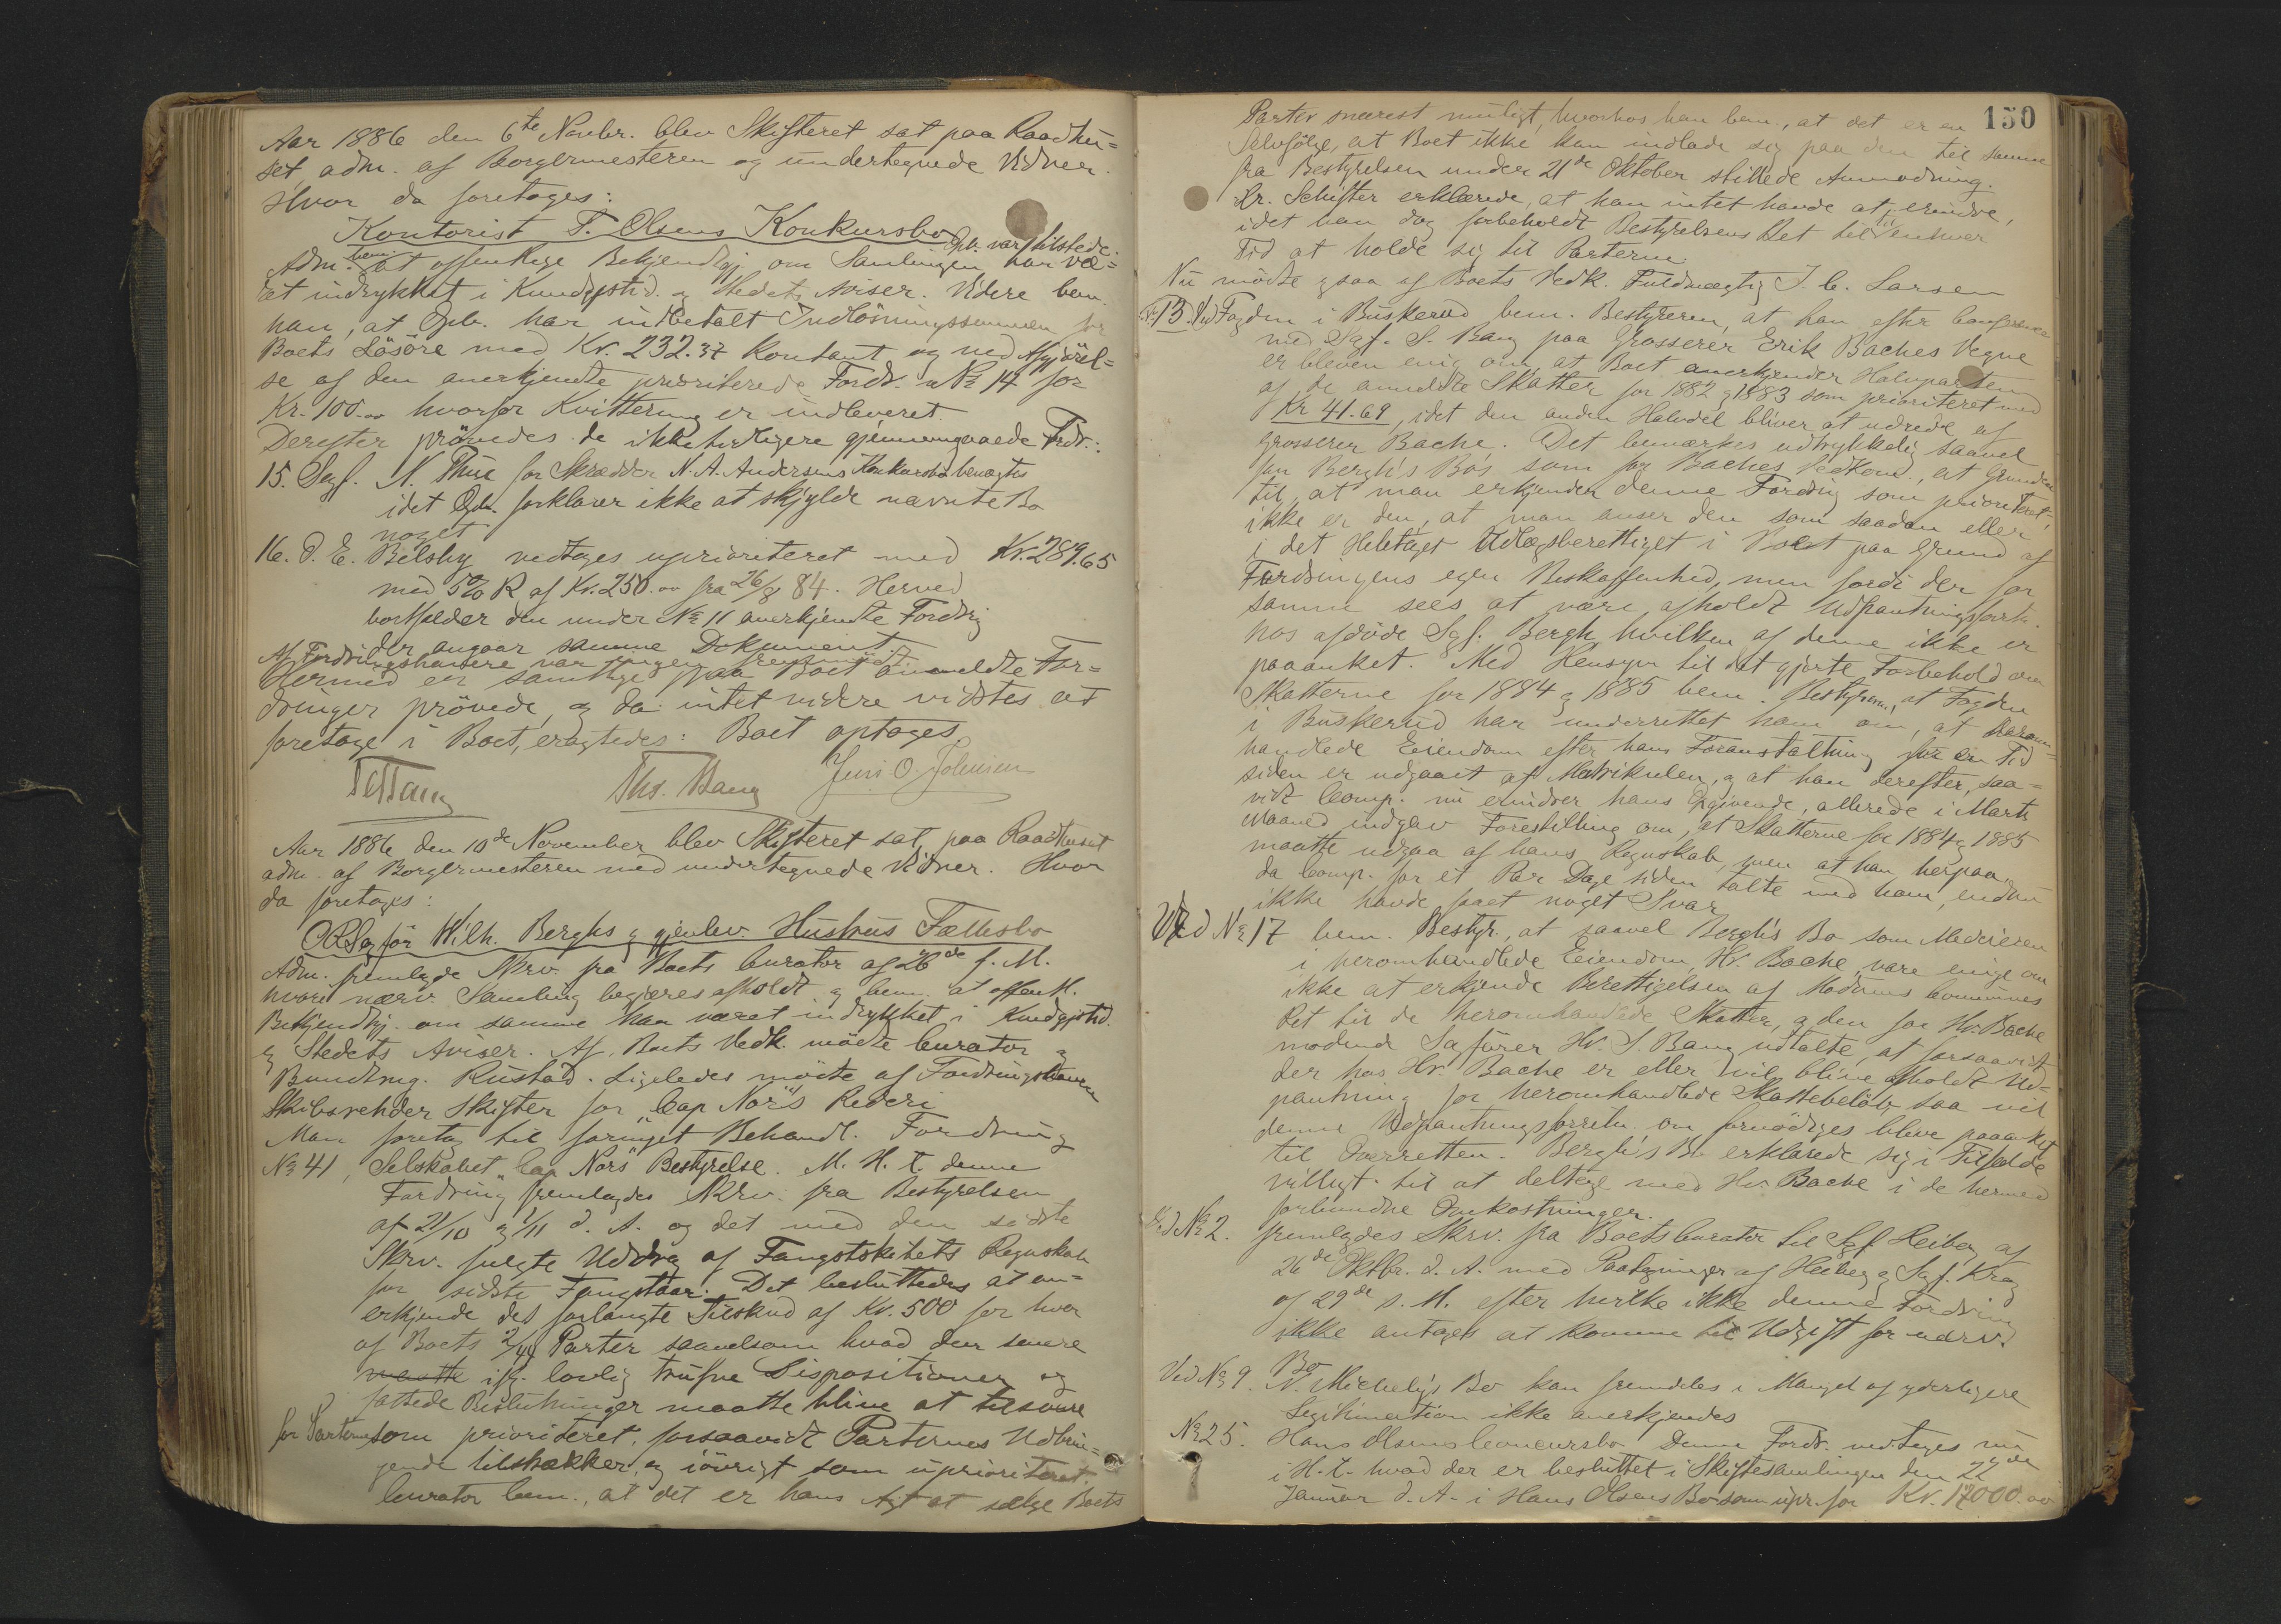 Aar 1886 den 6te Novbr. blev Skifteret sat paa Raadhu=
set, adm. af Borgermesteren og undertegnede Vidner.
Hvor da foretoges:
Kontorist T. Olsens Konkursbo. Opb. var tilstede.
Adm. bem. at offentlige Bekjendtgj. om Samlingen har væ=
ret indrykket i Kundgjstid. og Stedets Aviser. Videre bem.
han, at Opb. har indbetalt Indlösningssummen for
Boets Lösöre med Kr. 232.37 kontant og ved Afgjörel=
se af den anerkjendte prioriterede Fordr. No 14 for
Kr. 100.00 hvorfor Kvittering er indleveret.
Derefter prövedes de ikke tidligere gjennemgaaede Fordr.:
15. Sagf. N. Thue for Skrædder N. A. Andersens Konkursbo benægtes
idet Opb. forklarer ikke at skylde nævnte Bo
noget
16. O. E. Bilsby vedtages uprioriteret med Kr. 289.65
med 5% R af Kr. 250.00 fra 26/8 84. Herved
bortfalder den under No 11 anerkjendte Fordrig
der angaar samme Dokument.
Af Fordringshavere var ingen fremmödt
Hermed er samtlige paa Boet anmeldte For=
dringer prövede, og da intet videre vidstes at
foretage i Boet, eragtedes: Boet optages.
Ths. Bang Jens O. Johnsen
Aar 1886 den 10de November blev Skifteret sat paa Raadhuset
adm. af Borgermesteren med undertegnede Vidner. Hvor
da foretoges:
ORSagför Wilh. Berghs og gjenlev. Hustrus Fællesbo
Adm. fremlagde Skrv. fra Boets Curator af 26de f. M.
hvori nærv. Samling begjæres afholdt og bem. at offentl.
Bekjendtgj. om samme har været indrykket i Kundgjstid.
og Stedets Aviser. Af Boets Vedk. mödte Curator og
Bundtmg. Rustad. Ligeledes mödte af Fordringshavere
Skibsrehder Skifter for "Cap Nors" Rederi
Man foretog til fornyet Behandl. Fordring
No 41, Selskabet "Cap Nors" Bestyrelse. M. H. t. denne
Fordring fremlagdes Skrv. fra Bestyrelsen
af 21/10 og 1/11 d. A. og det med den sidste
Skrv. fulgte Uddrag af Fangstskibets Regnskab
for sidste Fangstaar. Det besluttedes at an=
erkjende det forlangte Tilskud af Kr. 500 for hver
af Boets 2/44 Parter saavelsom hvad der senere
maatte ifg. lovlig trufne Dispositioner og
fattede Beslutninger maatte blive at tilsvare
for Parterne som prioriteret, forsaavidt Parternes Udbrin=
gende tilstrækker, og iövrigt som uprioriteret.
Curator bem., at det er hans Agt at sælge Boets
150
Parter snarest muligt, hvorhos han bem., at det er en
Selvfölge, at Boet ikke kan indlade sig paa den til samme
fra Bestyrelsen under 21de Oktober stillede Anmodning.
Hr. Schifter erklærede, at han intet havde at erindre,
idet han dog forbeholdt Bestyrelsens Ret til til enhver
Tid at holde sig til Parterne
Nu mödte ogsaa af Boets Vedk. Fuldmægtig J. C. Larsen
No 13. Ved Fogden i Buskerud bem. Bestyreren, at han efter Conference
med Sagf. S. Bang paa Grosserer Erik Baches Vegne
er bleven enig om at Boet anerkjender Halvparten
af de anmeldte Skatter for 1882 og 1883 som prioriteret med
Kr 41.69, idet den anden Halvdel bliver at udrede af
Grosserer Bache. Det bemærkes udtrykkelig saavel
for Bergh's Bo, som for Baches Vedkom., at Grunden
til, at man erkjender denne Fordrig som prioriteret,
ikke er den, at man anser den som saadan eller
i det Heletaget Udlægsberettiget i Boet paa Grund af
Fordringens egen Beskaffenhed, men fordi der for
samme sees at være afholdt Udpantningsforr.
hos afdöde Sagf. Bergh, hvilken af denne ikke er
paaanket. Med Hensyn til det gjorte Forbehold om
Skatterne for 1884 og 1885 bem. Bestyreren, at Fogden
i Buskerud har underrettet ham om, at heromhandlede
Eiendom efter hans Foranstaltning for en Tid
siden er udgaaet af Matrikulen, og at han derefter, saa=
vidt Comp. nu erindrer hans Opgivende, allerede i Marts
Maaned indgav Forestilling om, at Skatterne for 1884 og 1885
maatte udgaa af hans Regnskab, men at han herpaa,
da Comp. for et Par Dage siden talte med ham, endnu
ikke havde faaet noget Svar
Ved No 17 bem. Bestyr., at saavel Bergh's Bo som Medeieren
i heromhandlede Eiendom, Hr. Bache, vare enige om
ikke at erkjende Berettigelsen af Modums Communes
Ret til de heromhandlede Skatter, og den for Hr. Bache
mödende Sagförer Hr. S. Bang udtalte, at forsaavidt
der hos Hr. Bache er eller vil blive afholdt Ud=
pantning for heromhandlede Skattebelöb, saa vil
denne Udpantningsforretn. om fornödiges blive paaanket
til Overretten. Bergh's Bo erklærede sig i Tilfælde
villigt til at deltage med Hr. Bache i de hermed
forbundne Omkostninger.
Ved No 2. fremlagdes Skrv. fra Boets Curator til Sagf. Heiberg af
26de Oktbr. d. A. med Paategninger af Heiberg og Sagf. Krag
af 29de s. M. efter hvilke ikke denne Fordring
ikke antages at komme til Udgift for nærv.
Bo
Ved No 9. N. Michely's Bo kan fremdeles i Mangel af yderligere
Legitimation ikke anerkjendes
No 25. Hans Olsens Concursbo Denne Fordr. vedtages nu
i H. t. hvad der er besluttet i Skiftesamlingen den 22de
Januar d. A. i Hans Olsens Bo som upr. for Kr. 17000.00